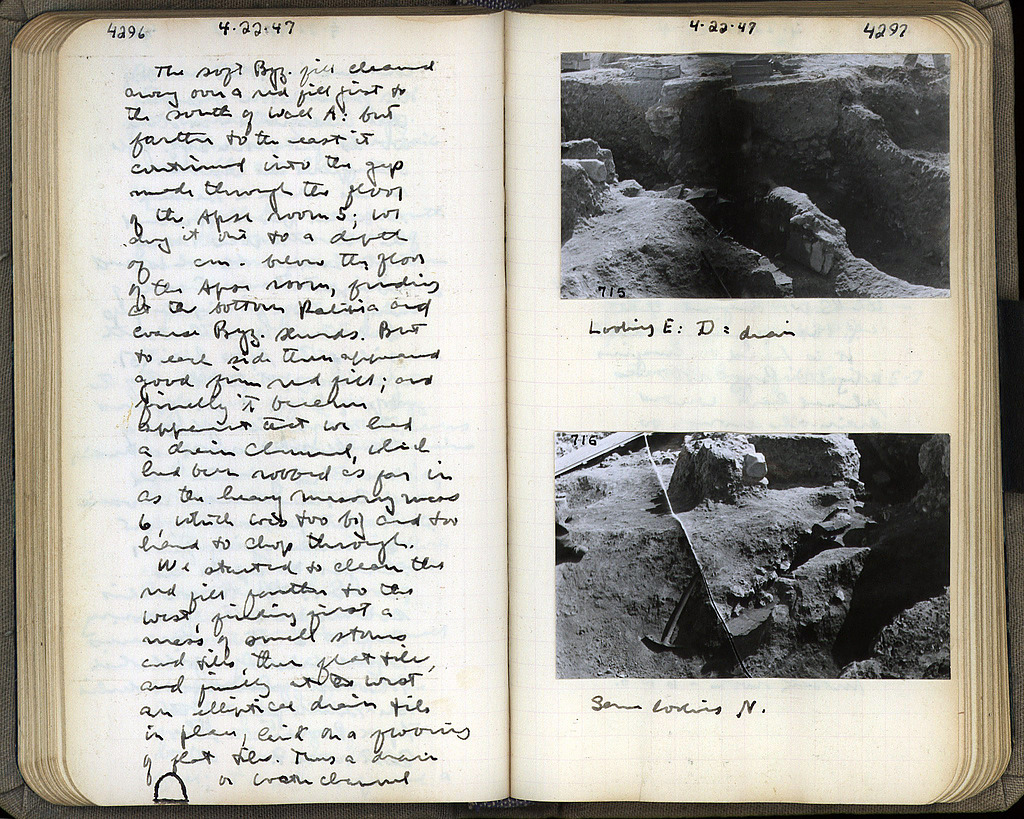 4296
4-22-47
The soft Byz. fill cleaned
away over a red fill just to
the south of Wall A: but
farther to the east it
continued into the gap
made through the floor
of the Apse room 5; we
dug it out to a depth
of cm. below the floor
of the Apse room, finding
at the bottom and
coarse Byz. sherds. But
to each side then appeared
good firm red fill; and
finally it became
apparent that we had
a drain channel, which
had been robbed as far in
as the heavy masonry mass
6, which was too big and too
hard to chop through.
We started to clean this
red fill farther to the
west, finding first a
mass of small stones
and tiles, then flat tile,
and finally at the west
an elliptical drain tile
in plan, laid on a flooring
of flat tiles. Thus a drain
or water channel
4-22-47
4297
715
Looking E: D = drain
716
Same looking N.